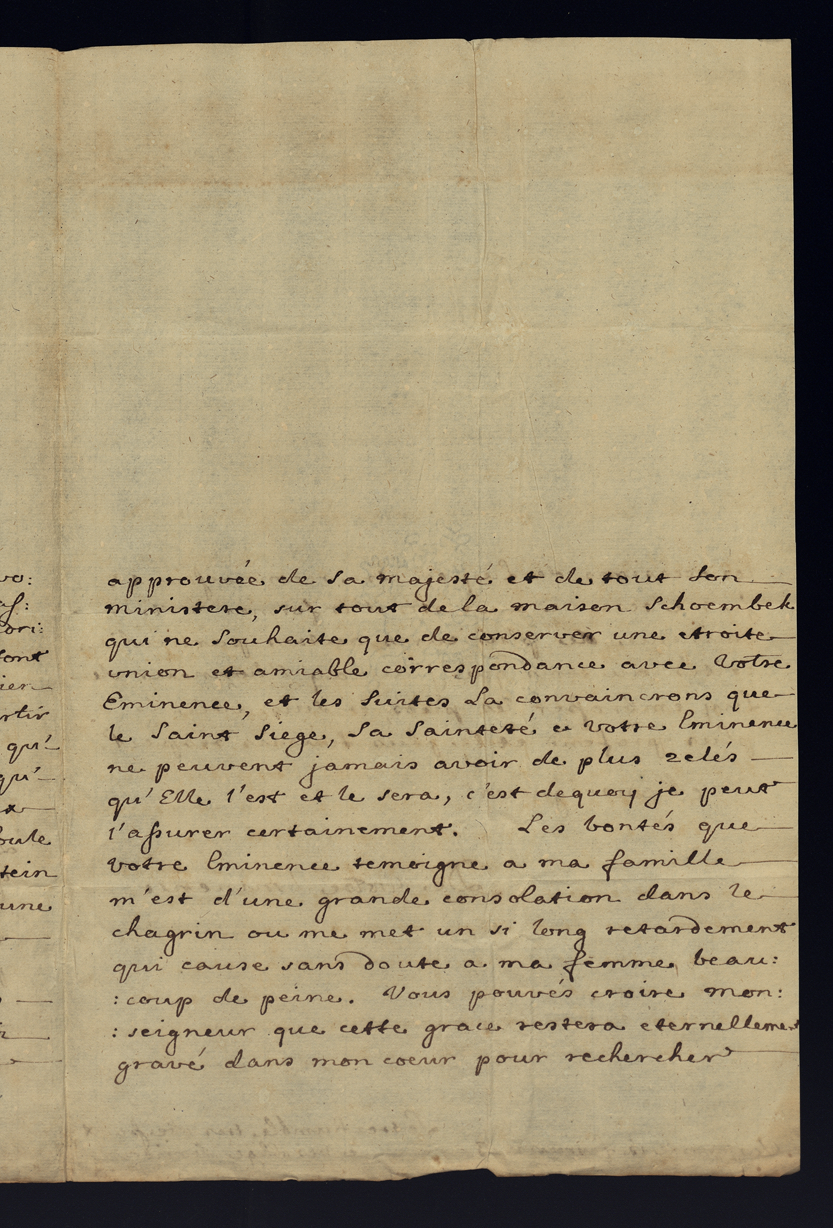 vo:
ont
ien
rtir
qu'
qu'
oule
tein
une
approuvée de sa majesté et de tout son
ministere, sur tout de la maison Schoembek
qui ne souhaite que de conserver une etroite
union et amiable correspondance avec Votre
Eminence, et les suites La convaincrons que
le Saint Siege, Sa Sainteté e Votre Eminence
ne peuvent jamais avoir de plus zelés
qu'Elle l'est et le sera, c'est dequoy je peut
l'assurer certainement. Les bontés que
Votre Eminence temoigne a ma famille
m'est d'une grande consolation dans le
chagrin ou me met un si long retardement
qui cause sans doute a ma femme beau:
:coup de peine. Vous pouvés croire mon:
:seigneur que cette grace restera eternellement
gravé dans mon coeur pour rechercher